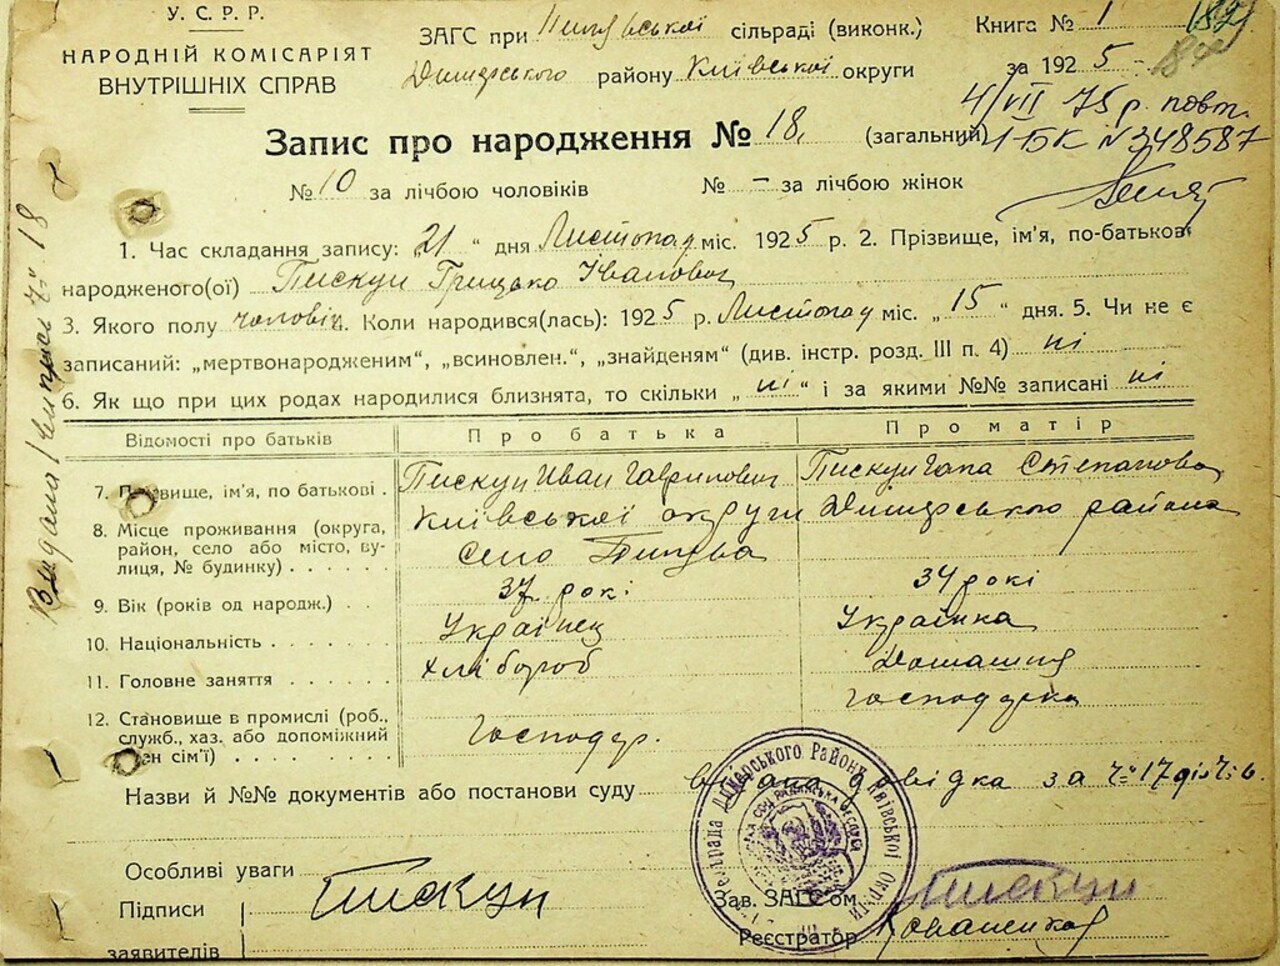 У. С. Р. Р.
НАРОДНІЙ КОМІСАРІЯТ
ВНУТРІШНІХ СПРАВ
ЗАГС при сільраді (виконк.)
Димерського району Київської округи
Книга № 1
за 1925
4/VII 75 р. повт.
1-БК № 348587
Запис про народження № 18. (загальний)
№ 10 за лічбою чоловіків № – за лічбою жінок
1. Час складання запису: „21 “ дня Листопад міс. 1925 р. 2. Прізвище, ім'я, по-батькові
народженого(ої) Пискун Грицько Іванович
3. Якого полу чоловіч. 4. Коли народився(лась): 1925 р. Листопад міс. „ 15 “ дня. 5. Чи не є
записаний: „мертвонародженим“, „всиновлен.“, „знайденям“ (див. інстр. розд. III п. 4) ні
6. Як що при цих родах народилися близнята, то скільки „ ні “ і за якими №№ записані ні
Відомості про батьків Про батька Про матір
7. Прізвище, ім'я, по батькові . Пискун Иван Гаврилович Пискун Гапа Степановa
8. Місце проживання (округа, район, село або місто, ву-лиця, № будинку) . . . . . . Київської округи Димерського района
село
9. Вік (років од народж.) . . 37 рокі 34 рокі
10. Національність . . . . . . Українец Українка
11. Головне заняття . . . . . . хлібороб Домашня
господарка
12. Становище в промислі (роб., служб., хаз. або допоміжний член сім'ї) . . . . . . . . Господар.
Назви й №№ документів або постанови суду видана довідка за ч. 17
Особливі уваги
Підписи
заявителів
Пискун
Зав. ЗАГС'ом Пискун
Реєстратор
Димерського Району Київської Округи
Видана виписъ ч. 18